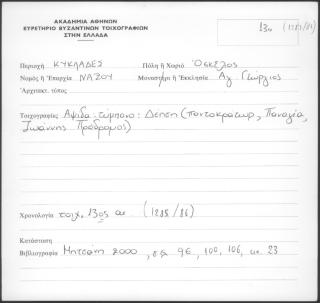 ΑΚΑΔΗΜΙΑ ΑΘΗΝΩΝ
ΕΥΡΕΤΗΡΙΟ ΒΥΖΑΝΤΙΝΩΝ ΤΟΙΧΟΓΡΑΦΙΩΝ
ΣΤΗΝ ΕΛΛΑΔΑ
13ο (1285/86)
Περιοχή ΚΥΚΛΑΔΕΣ Πόλη ή Χωριό Όσκελος
Νομός ή Επαρχία ΝΑΞΟΥ Μοναστήρι ή Εκκλησία Αγ. Γεώργιος
Αρχιτεκτ. τύπος
Τοιχογραφίες Αψίδα: τύμπανο: Δέηση (Παντοκράτωρ, Παναγία,
Ιωάννης Πρόδρομος)
Χρονολογία τοιχ. 13ος αι. (1285/86)
Κατάσταση
Βιβλιογραφία Μητσάνη 2000, σελ 98, 100, 106, εικ. 23